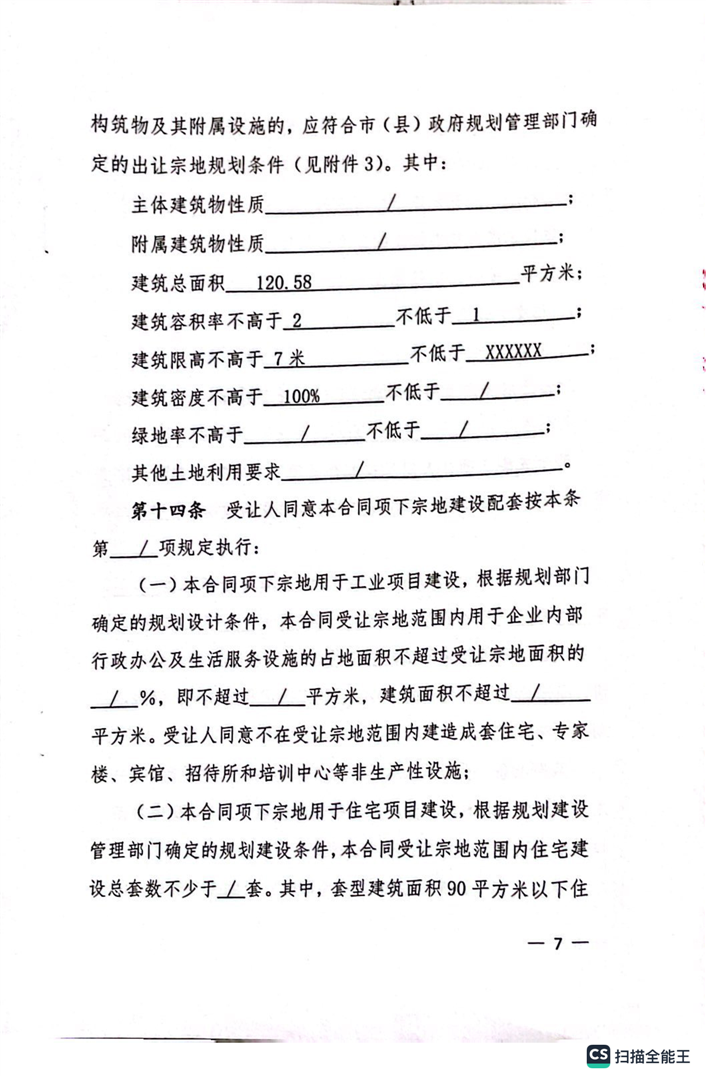 构筑物及其附属设施的，应符合市（县）政府规划管理部门确
定的出让宗地规划条件（见附件3）。其中：
主体建筑物性质 / ；
附属建筑物性质 / ；
建筑总面积 120.58 平方米；
建筑容积率不高于 2 不低于 1 ；
建筑限高不高于 7米 不低于 XXXXXX ；
建筑密度不高于 100% 不低于 / ；
绿地率不高于 / 不低于 / ；
其他土地利用要求 / 。
第十四条 受让人同意本合同项下宗地建设配套按本条
第 / 项规定执行：
（一）本合同项下宗地用于工业项目建设，根据规划部门
确定的规划设计条件，本合同受让宗地范围内用于企业内部
行政办公及生活服务设施的占地面积不超过受让宗地面积的
/ %，即不超过 / 平方米，建筑面积不超过 /
平方米。受让人同意不在受让宗地范围内建造成套住宅、专家
楼、宾馆、招待所和培训中心等非生产性设施；
（二）本合同项下宗地用于住宅项目建设，根据规划建设
管理部门确定的规划建设条件，本合同受让宗地范围内住宅建
设总套数不少于 / 套。其中，套型建筑面积90平方米以下住
— 7 —
CS 扫描全能王